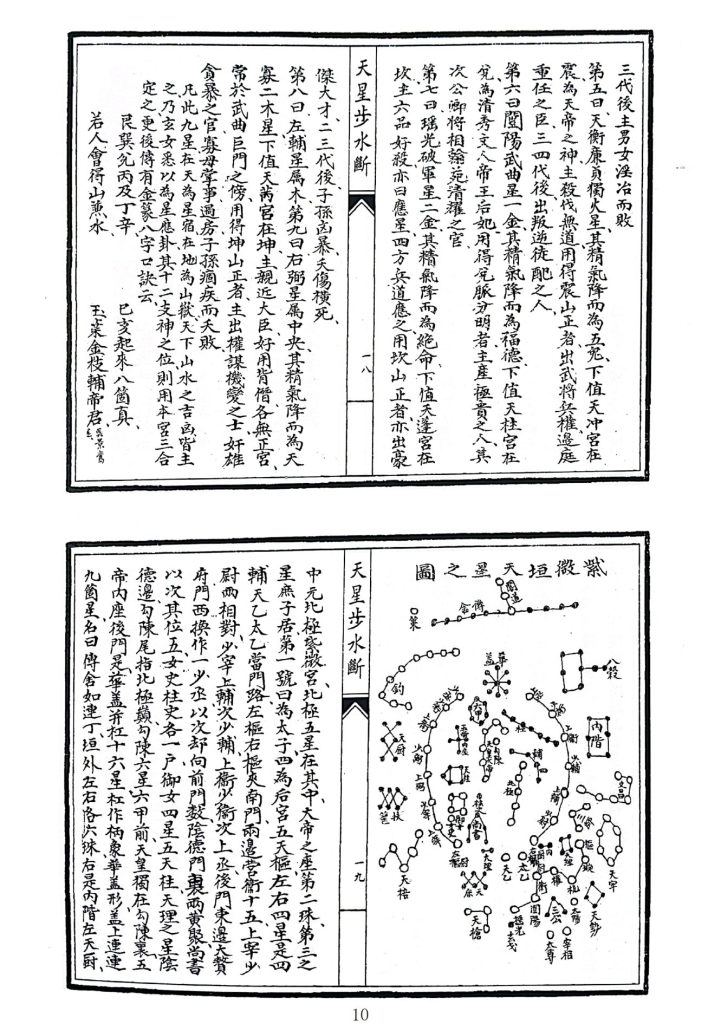 三代後主男女淫冶而敗
第五曰天衡廉貞獨火星其精氣降而為五鬼下值天冲宮在
震為天帝之神主殺伐無道用得震山正者出武將兵權邊庭
重任之臣三四代後出叛逆徒配之人
第六曰闓陽武曲星一金其精氣降而為福德下值天柱宮在
兌為清秀文人帝王后妃用得兌脈分明者主產極貴之人其
次公卿將相翰苑清耀之官
第七曰瑤光破軍星二金其精氣降而為絕命下值天蓬宮在
坎主六品好殺亦曰應星四方兵道應之用坎山正者亦出豪
天星步水斷
一八
傑大才二三代後子孫凶暴夭傷橫死
第八曰左輔星属木第九曰右弼星属中央其精氣降而為天
寡二木星下值天芮宮在坤主親近大臣好用皆僭各無正宮
常於武曲巨門之傍用得坤山正者主出權謀機變之士奸雄
貪暴之官寡母掌事過房子孫痼疾而夭敗
凡此九星在天為星宿在地為山嶽天下山水之吉凶皆主
之乃玄女悉以為星應卦其十二支神之位則用本宮三合
定之更後傳有金篆八字口訣云
艮巽兌丙及丁辛
巳亥起來八箇真
若人會得山兼水
玉葉金枝輔帝君
紫微垣天星之圖
閣道
傳舍
策
八穀
華蓋
鈎
六甲
內階
天厨
文昌
上衛
少輔
上輔
天柱
尚書
天理
天牢
天床
天乙
太乙
天棓
天槍
闓陽
搖光
三公
天勢
太陽
宰相
太尊
玄戈
天星步水斷
一九
中元北極紫微宮北極五星在其中大帝之座第二珠第三之
星庶子居第一號曰為太子四為后宮五天樞左右四星是四
輔天乙太乙當門路左樞右樞夾南門兩邊營衛十五上宰少
尉兩相對少宰上輔次少輔上衛少衛次上丞後門東邊大贊
府門西換作一少丞以次却向前門數陰德門裏兩黄聚尚書
以次其位五女史柱史各一戶御女四星五天柱天理之星陰
德邊勾陳尾指北極巔勾陳六星六甲前天皇獨在勾陳裏五
帝內座後門是華蓋并杠十六星杠作柄象華蓋形蓋上連連
九箇星名曰傳舍如連丁垣外左右各六珠右是內階左天厨
10